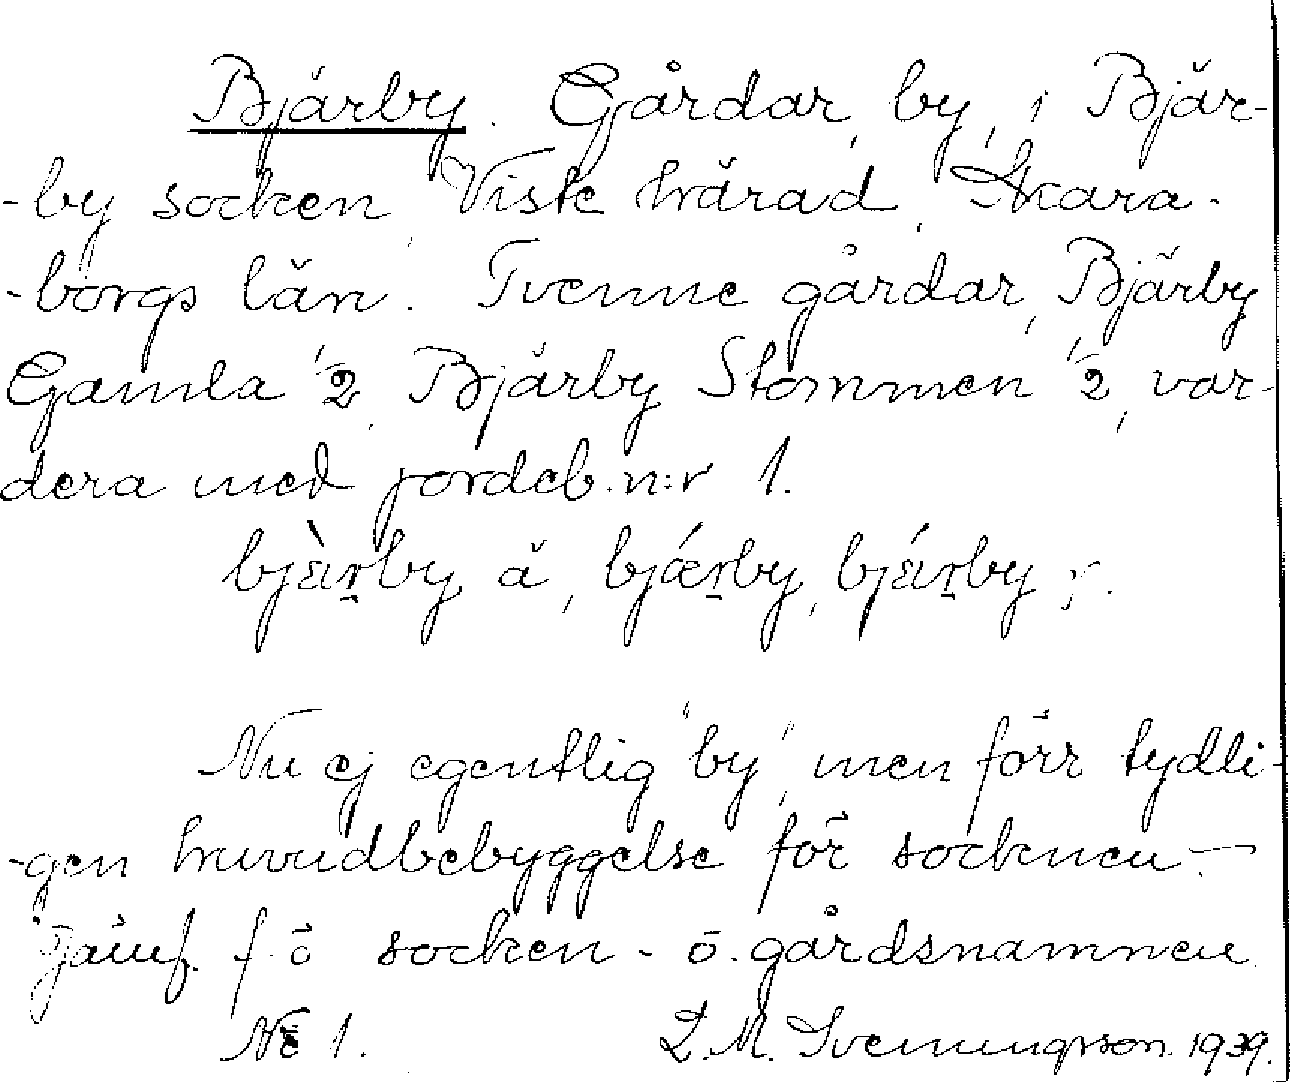 Bjärby. Gårdar, by, i Bjär-
-by socken, Viste härad, Skara-
-borgs län. Tvenne gårdar, Bjärby
Gamla 1/2, Bjärby Stommen 1/2, var-
dera med jordeb.n:r 1.
bjὰ̱rby, ä, bjǽrby, bjɛ́rby, y.
Nu ej egentlig "by", men förr tydli-
-gen huvudbebyggelse för socknen. —
Jämf. f. ö socken- o. gårdsnamnen.
No 1. L. M. Svenungsson. 1939.